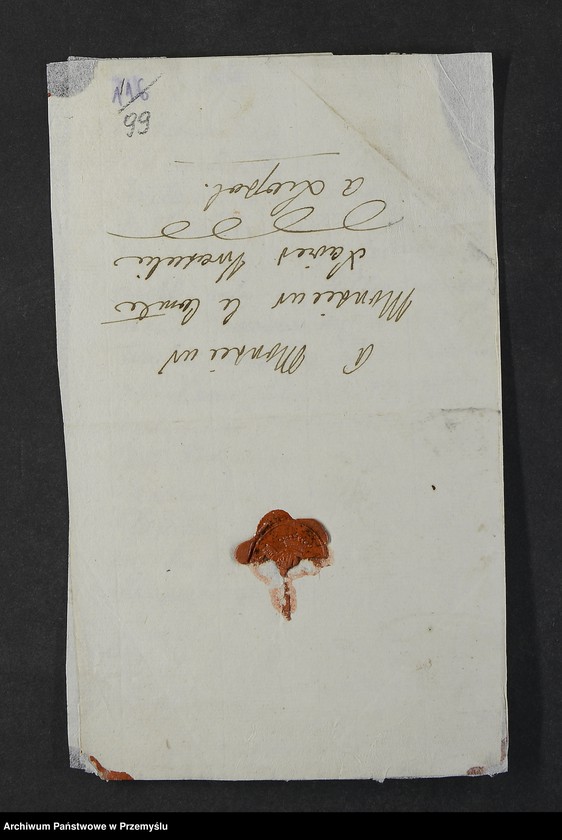 116
99
A Monsieur
Monsieur le Comte
Xavier Krasicki
a Leopol.
Archiwum Państwowe w Przemyślu